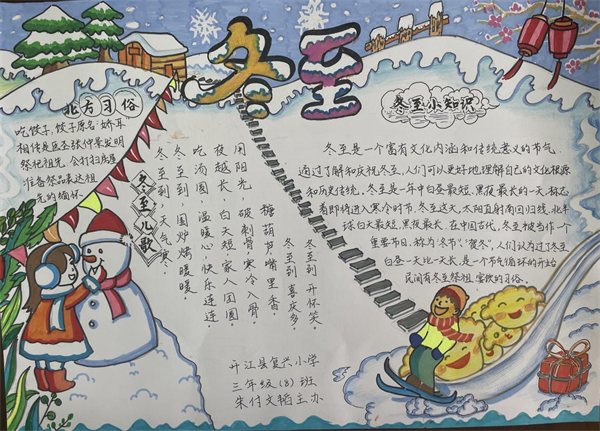 冬至
北方习俗
吃饺子,饺子原名"娇耳
相传是医圣张仲景发明
祭祀祖先,会打扫房屋
准备祭品表达祖
先的缅怀
冬至儿歌
冬至到,天气寒,
冬至到,围炉烤暖暖
吃汤圆,温暖心,快乐连连,
夜越长,白天短,家人团圆
阳光,破刺骨,寒冷入骨,
糖葫芦,嘴里香,
冬至到,喜庆多
冬至到,开怀笑,
冬至小知识
冬至是一个富有文化内涵和传统意义的节气,
通过了解和庆祝冬至,人们可以更好地理解自己的文化根源
和历史传统,冬至是一年中白昼最短,黑夜最长的一天,标志
着即将进入寒冷时节,冬至这天,太阳直射南回归线,北半
球白天最短,黑夜最长,在中国古代,冬至被当作一个
重要节日,称为"冬节","贺冬",人们认为过了冬至
白昼一天比一天长,是一个节气循环的开始
民间有冬至祭祖,宴饮的习俗。
开江县复兴小学
三年级(8)班
朱付文韬主办